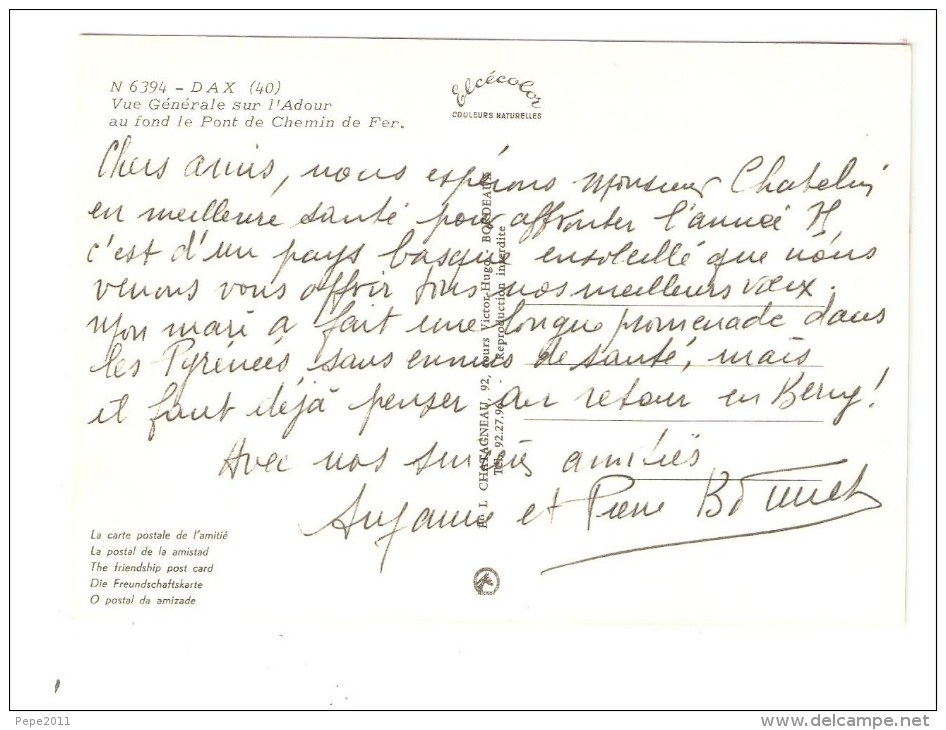 N 6394 – DAX (40)
Vue Générale sur l'Adour
au fond le Pont de Chemin de Fer.
Elcécolor
COULEURS NATURELLES
Chers amis, nous espérons Monsieur Chatelin
en meilleure santé pour affronter l'année
c'est d'un pays basque ensoleillé que nous
venons vous offrir tous nos meilleurs vœux.
Mon mari a fait une longue promenade dans
les Pyrénées sans ennuis de santé, mais
il faut déjà penser au retour en Berry!
Avec nos sincères amitiés
Suzanne et Pierre
CHATAGNEAU, 92, cours Victor-Hugo - BORDEAUX
Tél. 92.27.96 - Reproduction interdite
La carte postale de l'amitié
La postal de la amistad
The friendship post card
Die Freundschaftskarte
O postal da amizade
Pepe2011
www.delcampe.net